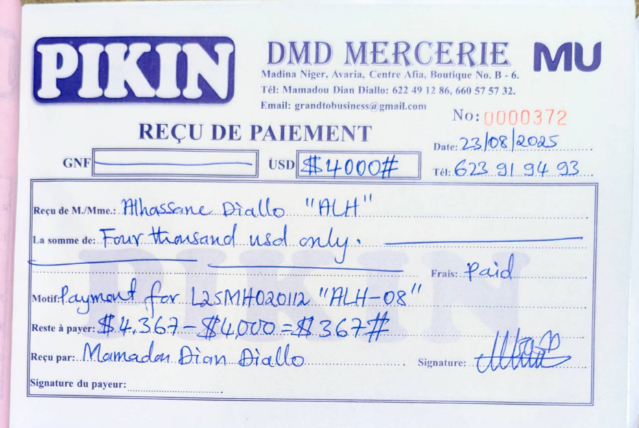 PIKIN
DMD MERCERIE MU
Madina Niger, Avaria, Centre Afia, Boutique No. B - 6.
Tél: Mamadou Dian Diallo: 622 49 12 86, 660 57 57 32.
Email: grandtobusiness@gmail.com
No: 0000372
REÇU DE PAIEMENT
Date: 23/08/2025
GNF USD $4000#
Tél: 623 91 94 93
Reçu de M./Mme.: Alhassane Diallo "ALH"
La somme de: Four thousand usd only.
Frais: Paid
Motif: Payment for L25MH020112 "ALH-08"
Reste à payer: $4,367-$4,000=$367#
Reçu par: Mamadou Dian Diallo Signature:
Signature du payeur:
PIKIN